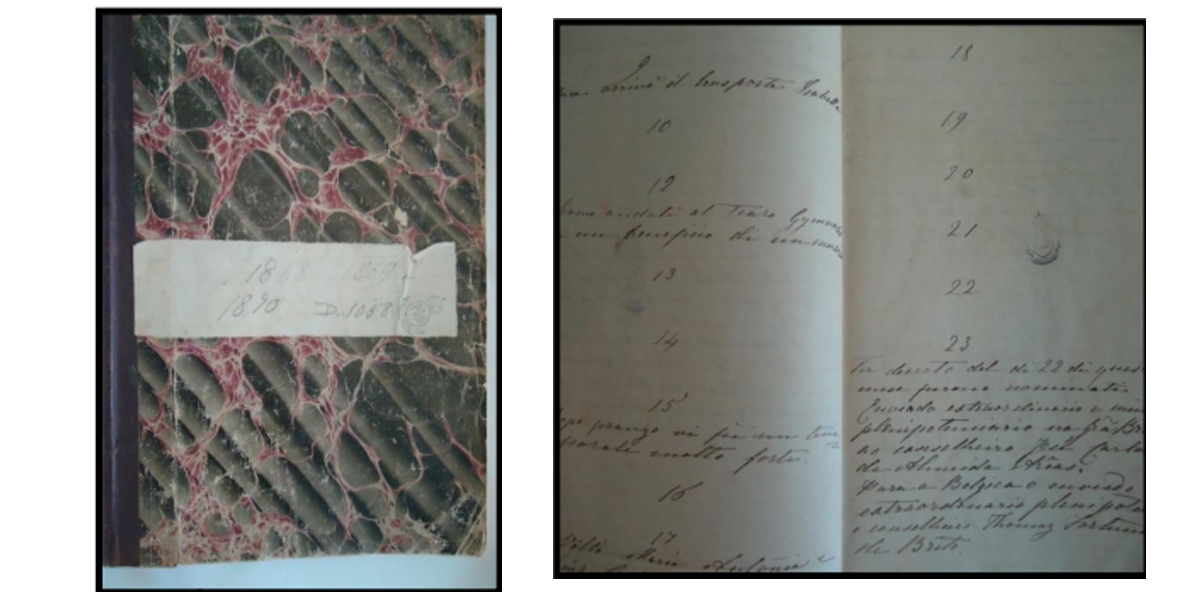 1868 1869 e
1870 D. 1058
9
arrivò il trasporto Isabella
10
12
andati al Teatro Gymnasio
un beneficio di un
13
14
15
pranzo vi fu un tem=
porale molto forte.
16
17
Maria Antonia e
18
19
20
21
22
23
Per decreto del dì 22 di ques
mese furono nominati
Enviado extraordinario e min
plenipotenciario na Grã Br
ao conselheiro José Carlo
de Almeida Arêas.
Para a Belgica o enviado
extraordinario plenipote
o conselheiro Thomaz Fortun
de Brito.